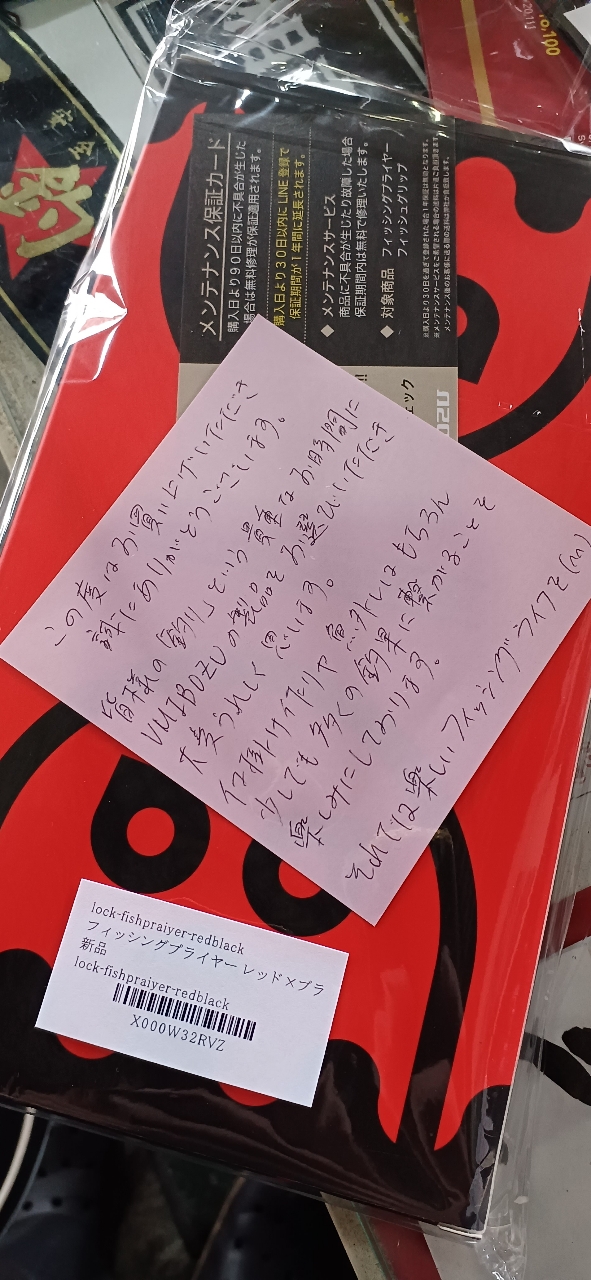 メンテナンス保証カード
購入日より90日以内に不具合が生じた
場合は無料修理が保証適用されます。
購入日より30日以内にLINE登録で
保証期間が1年間に延長されます。
◆ メンテナンスサービス
商品に不具合が生じたり故障した場合
保証期間内は無料で修理いたします。
◆ 対象商品 フィッシングプライヤー
フィッシュグリップ
この度はお買い上げいただき
誠にありがとうございます。
皆様の「釣り」という貴重なお時間に
UMIBOZUの製品をお選びいただき
大変うれしく思います。
少しでも多くの釣果に繋がることを
楽しみにしております。
それでは楽しいフィッシングライフを(m)
lock-fishpraiyer-redblack
フィッシングプライヤー レッド×ブラ
新品
lock-fishpraiyer-redblack
X000W32RVZ